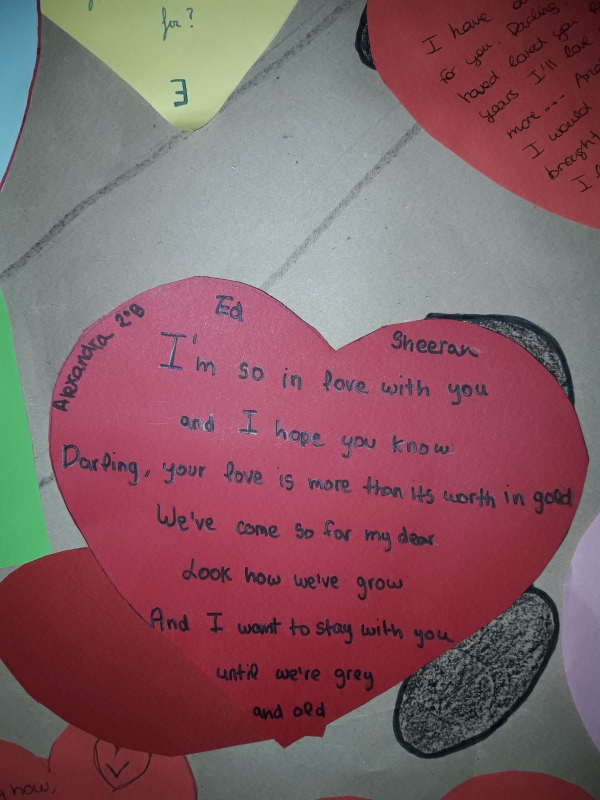 for?
E
I have
for you. Darling
loved you
years I'll love
more --- And
I would
brought
I
Alexandra 2ºB
Ed Sheeran
I'm so in love with you
and I hope you know
Darling, your love is more than its worth in gold
We've come so for my dear
Look how we've grow
And I want to stay with you
until we're grey
and old
now,